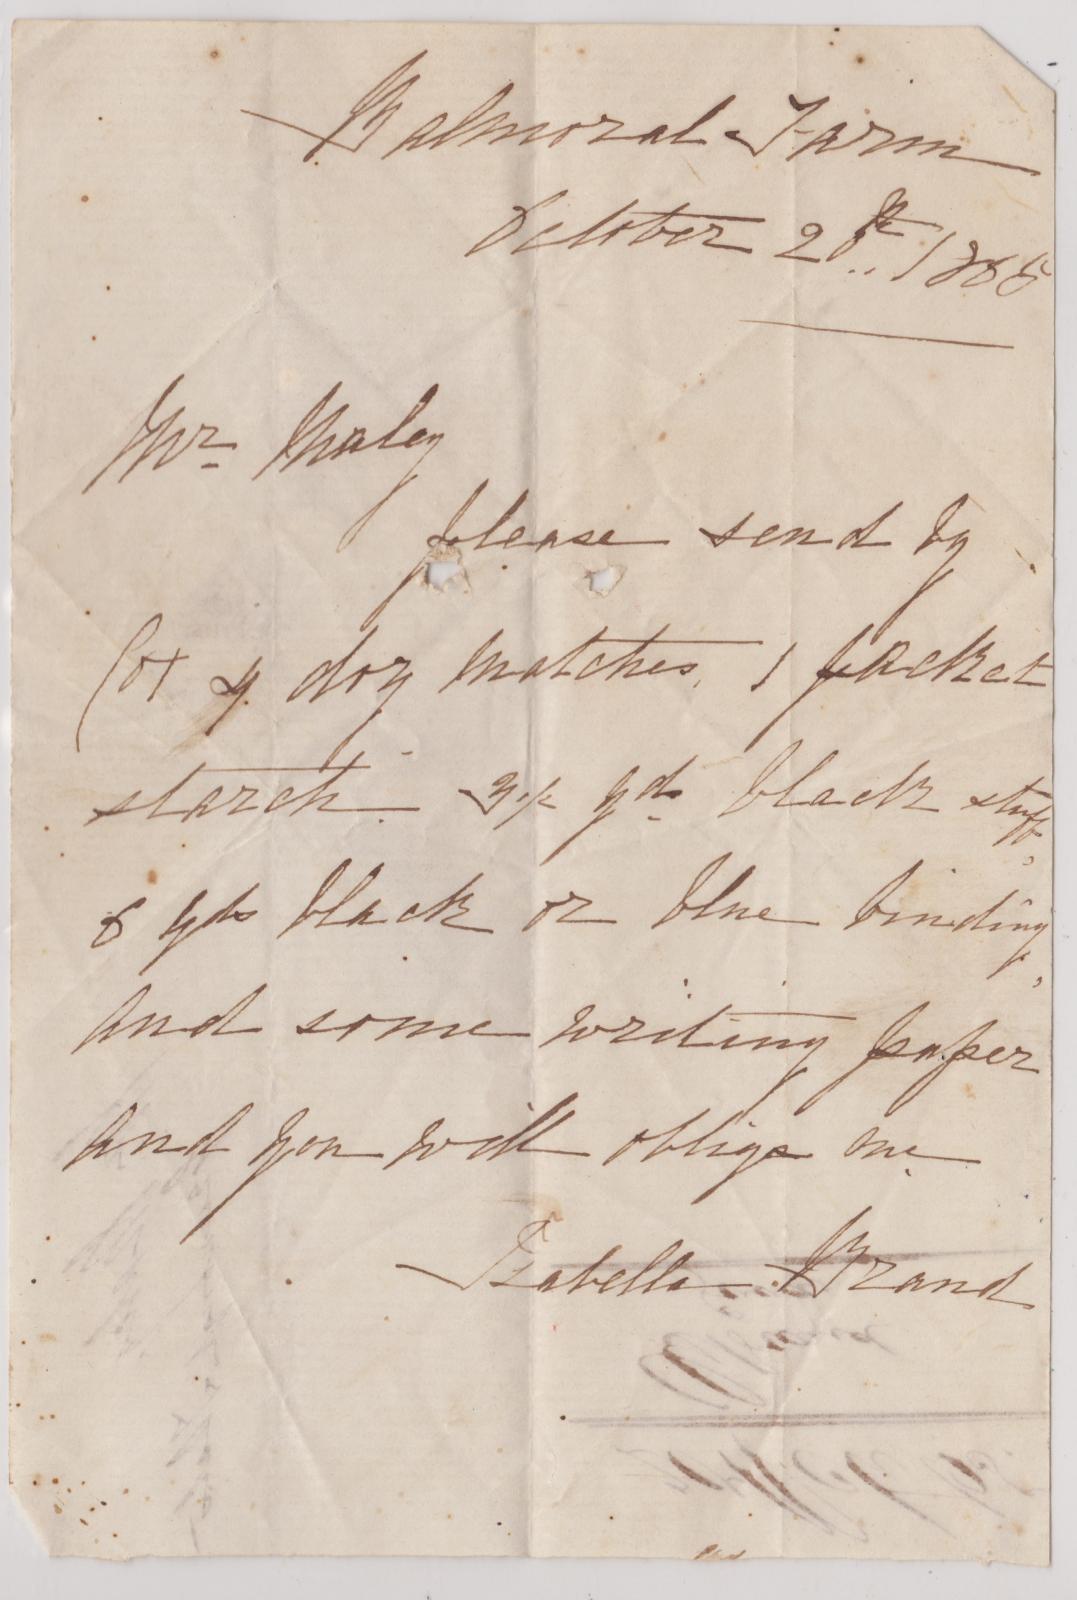 Balmoral Farm
October 28th 1865
Mr Maley
please send by
Cox ½ doz matches, 1 packet
starch 3½ yds black stuff,
6 yds black or blue binding,
and some writing paper
and you will oblige me
Isabella Brand